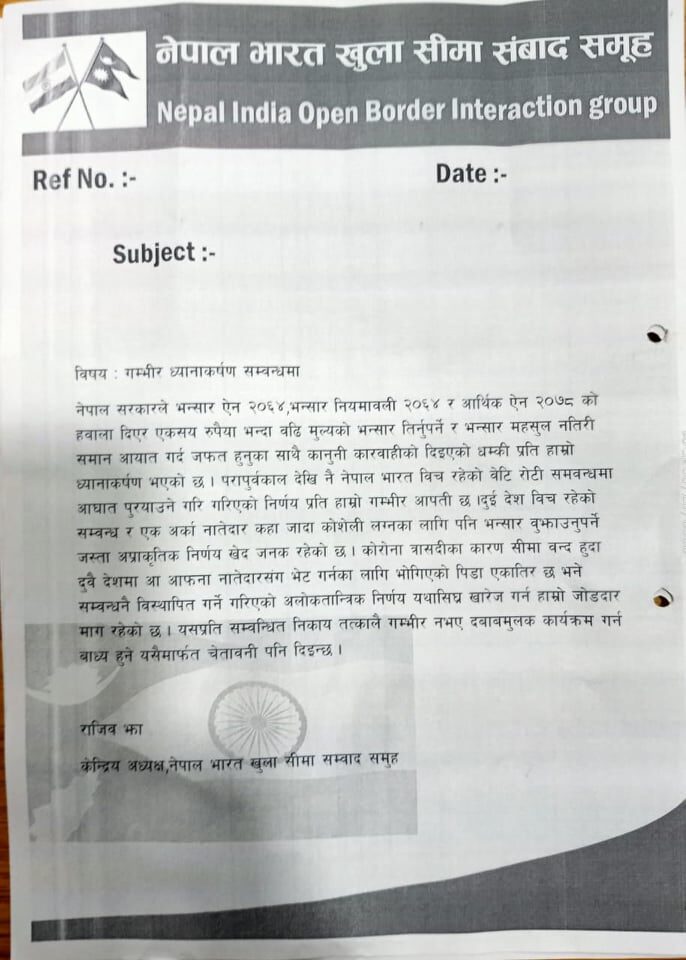 नेपाल भारत खुला सीमा संबाद समूह
Nepal India Open Border Interaction group
Ref No. :-
Date :-
Subject :-
विषय : गम्भीर ध्यानाकर्षण सम्वन्धमा
नेपाल सरकारले भन्सार ऐन २०६४,भन्सार नियमावली २०६४ र आर्थिक ऐन २०७८ को
हवाला दिएर एकसय रुपैया भन्दा वढि मुल्यको भन्सार तिर्नुपर्ने र भन्सार महसुल नतिरी
समान आयात गर्द जफत हुनुका साथै कानुनी कारवाहीको दिइएको धम्की प्रति हाम्रो
ध्यानाकर्षण भएको छ । परापुर्वकाल देखि नै नेपाल भारत विच रहेको वेटि रोटी समवन्धमा
आघात पुरयाउने गरि गरिएको निर्णय प्रति हाम्रो गम्भीर आपती छ ।दुई देश विच रहेको
सम्वन्ध र एक अर्का नातेदार कहा जादा कोशेली लग्नका लागि पनि भन्सार वुझाउनुपर्ने
जस्ता अप्राकृतिक निर्णय खेद जनक रहेको छ । कोरोना त्रासदीका कारण सीमा वन्द हुदा
दुवै देशमा आ आफना नातेदारसंग भेट गर्नका लागि भोगिएको पिडा एकातिर छ भने
सम्वन्धनै विस्थापित गर्ने गरिएको अलोकतान्त्रिक निर्णय यथासिघ्र खारेज गर्न हाम्रो जोडदार
माग रहेको छ । यसप्रति सम्वन्धित निकाय तत्कालै गम्भीर नभए दबाबमुलक कार्यक्रम गर्न
बाध्य हुने यसैमार्फत चेतावनी पनि दिइन्छ ।
राजिव झा
केन्द्रिय अध्यक्ष,नेपाल भारत खुला सीमा सम्वाद समुह